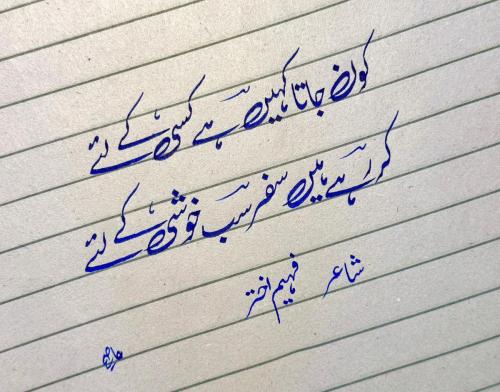 کون جاتا کہیں ہے کسی کے لئے
کر رہے ہیں سفر سب خوشی کے لئے
شاعر فہیم اختر